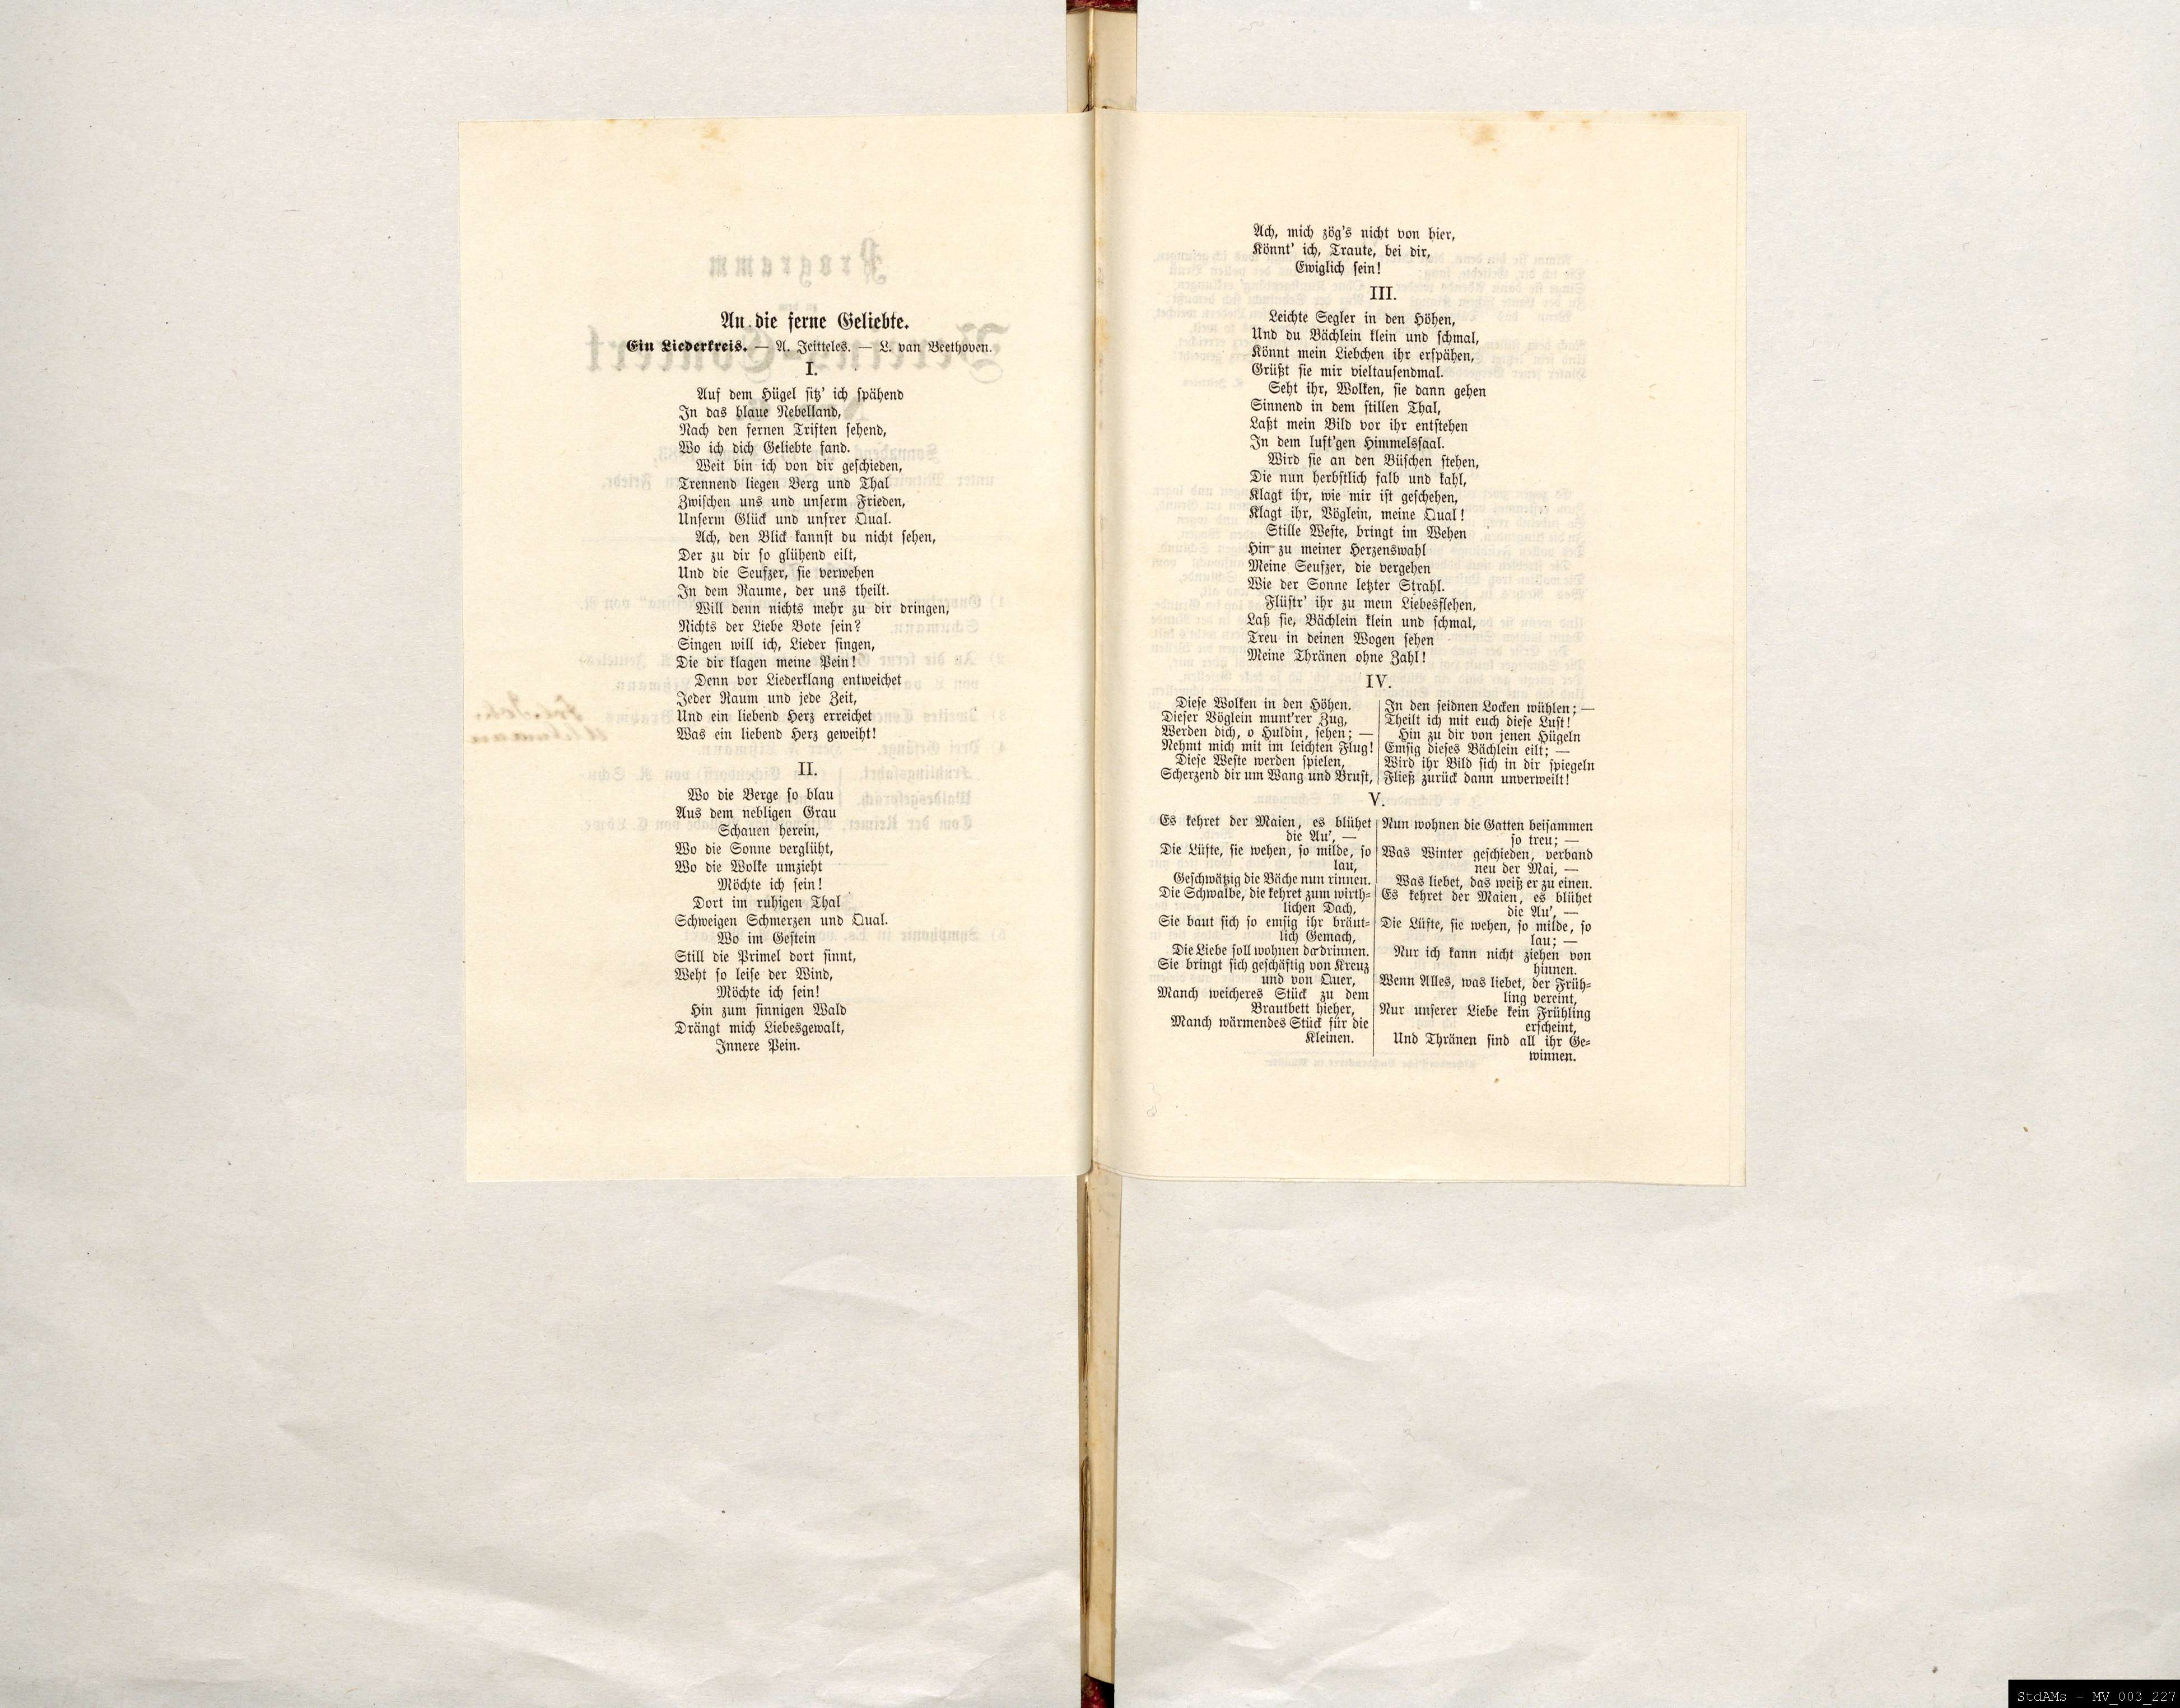 An die ferne Geliebte.
Ein Liederkreis. — A. Jeitteles. — L. van Beethoven.
I.
Auf dem Hügel sitz' ich spähend
In das blaue Nebelland,
Nach den fernen Triften sehend,
Wo ich dich Geliebte fand.
Weit bin ich von dir geschieden,
Trennend liegen Berg und Thal
Zwischen uns und unserm Frieden,
Unserm Glück und unsrer Qual.
Ach, den Blick kannst du nicht sehen,
Der zu dir so glühend eilt,
Und die Seufzer, sie verwehen
In dem Raume, der uns theilt.
Will denn nichts mehr zu dir dringen,
Nichts der Liebe Bote sein?
Singen will ich, Lieder singen,
Die dir klagen meine Pein!
Denn vor Liederklang entweichet
Jeder Raum und jede Zeit,
Und ein liebend Herz erreichet
Was ein liebend Herz geweiht!
II.
Wo die Berge so blau
Aus dem nebligen Grau
Schauen herein,
Wo die Sonne verglüht,
Wo die Wolke umzieht
Möchte ich sein!
Dort im ruhigen Thal
Schweigen Schmerzen und Qual.
Wo im Gestein
Still die Primel dort sinnt,
Weht so leise der Wind,
Möchte ich sein!
Hin zum sinnigen Wald
Drängt mich Liebesgewalt,
Innere Pein.
Ach, mich zög's nicht von hier,
Könnt' ich, Traute, bei dir,
Ewiglich sein!
III.
Leichte Segler in den Höhen,
Und du Bächlein klein und schmal,
Könnt mein Liebchen ihr erspähen,
Grüßt sie mir vieltausendmal.
Seht ihr, Wolken, sie dann gehen
Sinnend in dem stillen Thal,
Laßt mein Bild vor ihr entstehen
In dem luft'gen Himmelssaal.
Wird sie an den Büschen stehen,
Die nun herbstlich falb und kahl,
Klagt ihr, wie mir ist geschehen,
Klagt ihr, Vöglein, meine Qual!
Stille Weste, bringt im Wehen
Hin zu meiner Herzenswahl
Meine Seufzer, die vergehen
Wie der Sonne letzter Strahl.
Flüstr' ihr zu mein Liebesflehen,
Laß sie, Bächlein klein und schmal,
Treu in deinen Wogen sehen
Meine Thränen ohne Zahl!
IV.
Diese Wolken in den Höhen,
Dieser Vöglein munt'rer Zug,
Werden dich, o Huldin, sehen; —
Nehmt mich mit im leichten Flug!
Diese Weste werden spielen,
Scherzend dir um Wang und Brust,
In den seidnen Locken wühlen; —
Theilt ich mit euch diese Lust!
Hin zu dir von jenen Hügeln
Emsig dieses Bächlein eilt; —
Wird ihr Bild sich in dir spiegeln
Fließ zurück dann unverweilt!
V.
Es kehret der Maien, es blühet
die Au', —
Die Lüfte, sie wehen, so milde, so
lau,
Geschwätzig die Bäche nun rinnen.
Die Schwalbe, die kehret zum wirth-
lichen Dach,
Sie baut sich so emsig ihr bräut-
lich Gemach,
Die Liebe soll wohnen da drinnen.
Sie bringt sich geschäftig von Kreuz
und von Quer,
Manch weicheres Stück zu dem
Brautbett hieher,
Manch wärmendes Stück für die
Kleinen.
Nun wohnen die Gatten beisammen
so treu; —
Was Winter geschieden, verband
neu der Mai, —
Was liebet, das weiß er zu einen.
Es kehret der Maien, es blühet
die Au', —
Die Lüfte, sie wehen, so milde, so
lau; —
Nur ich kann nicht ziehen von
hinnen.
Wenn Alles, was liebet, der Früh-
ling vereint,
Nur unserer Liebe kein Frühling
erscheint,
Und Thränen sind all ihr Ge-
winnen.
StdAMs - MV_003_227